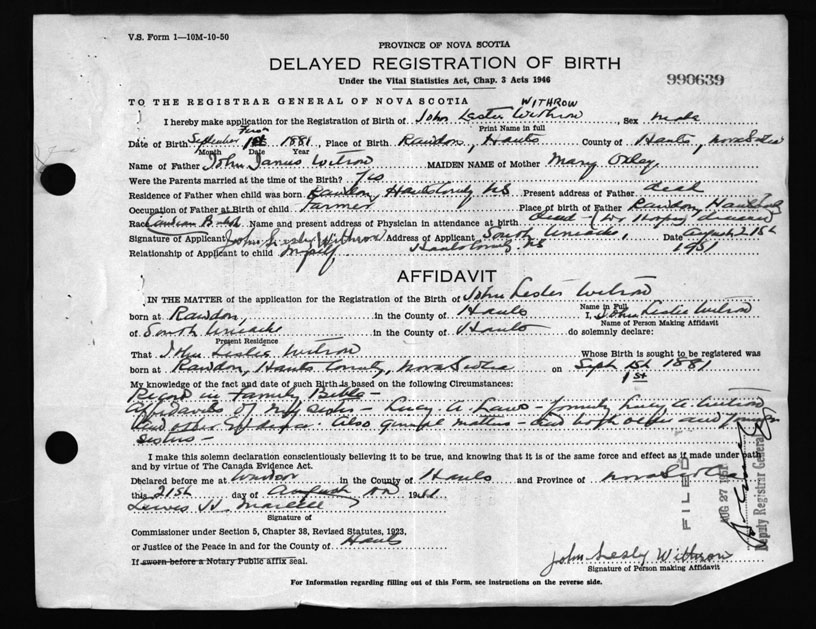 V.S. Form 1—10M-10-50
PROVINCE OF NOVA SCOTIA
DELAYED REGISTRATION OF BIRTH
Under the Vital Statistics Act, Chap. 3 Acts 1946
990639
TO THE REGISTRAR GENERAL OF NOVA SCOTIA
WITHROW
I hereby make application for the Registration of Birth of John Lester Withrow, Sex male
Print Name in full
First
Date of Birth September 1st 1881, Place of Birth Rawdon, Hants County of Hants, Nova Scotia
Month Date Year
Name of Father John James Witrow MAIDEN NAME of Mother Mary
Were the Parents married at the time of the Birth? Yes
Residence of Father when child was born Rawdon, Hants County NS Present address of Father dead
Occupation of Father at Birth of child Farmer Place of birth of Father Rawdon, Hants
Race Name and present address of Physician in attendance at birth dead
Signature of Applicant John Lesly Withrow Address of Applicant South Uniacke, Date August 21st
Relationship of Applicant to child Myself Hants County NS 1951
AFFIDAVIT
IN THE MATTER of the application for the Registration of the Birth of John Leslie Witrow
Name in Full
born at Rawdon, in the County of Hants I, John Leslie Witrow
Name of Person Making Affidavit
of South Uniacke in the County of Hants do solemnly declare:
Present Residence
That John Leslie Witrow Whose Birth is sought to be registered was
born at Rawdon, Hants County, Nova Scotia on Sept 1st 1881
1st
My knowledge of the fact and date of such Birth is based on the following Circumstances:
Record in Family Bible—
Affidavits of my sister— Lucy A. Laws— formerly Lucy A. Witrow
and other Also and both older and
sisters—
I make this solemn declaration conscientiously believing it to be true, and knowing that it is of the same force and effect as if made under oath
and by virtue of The Canada Evidence Act.
Declared before me at Windsor in the County of Hants and Province of Nova Scotia
this 21st day of August
Lewis H.
Signature of
Commissioner under Section 5, Chapter 38, Revised Statutes, 1923,
or Justice of the Peace in and for the County of Hants
If sworn before a Notary Public affix seal.
John Lesly Withrow
Signature of Person making Affidavit
For Information regarding filling out of this Form, see instructions on the reverse side.
FILED
AUG 27
Deputy Registrar General